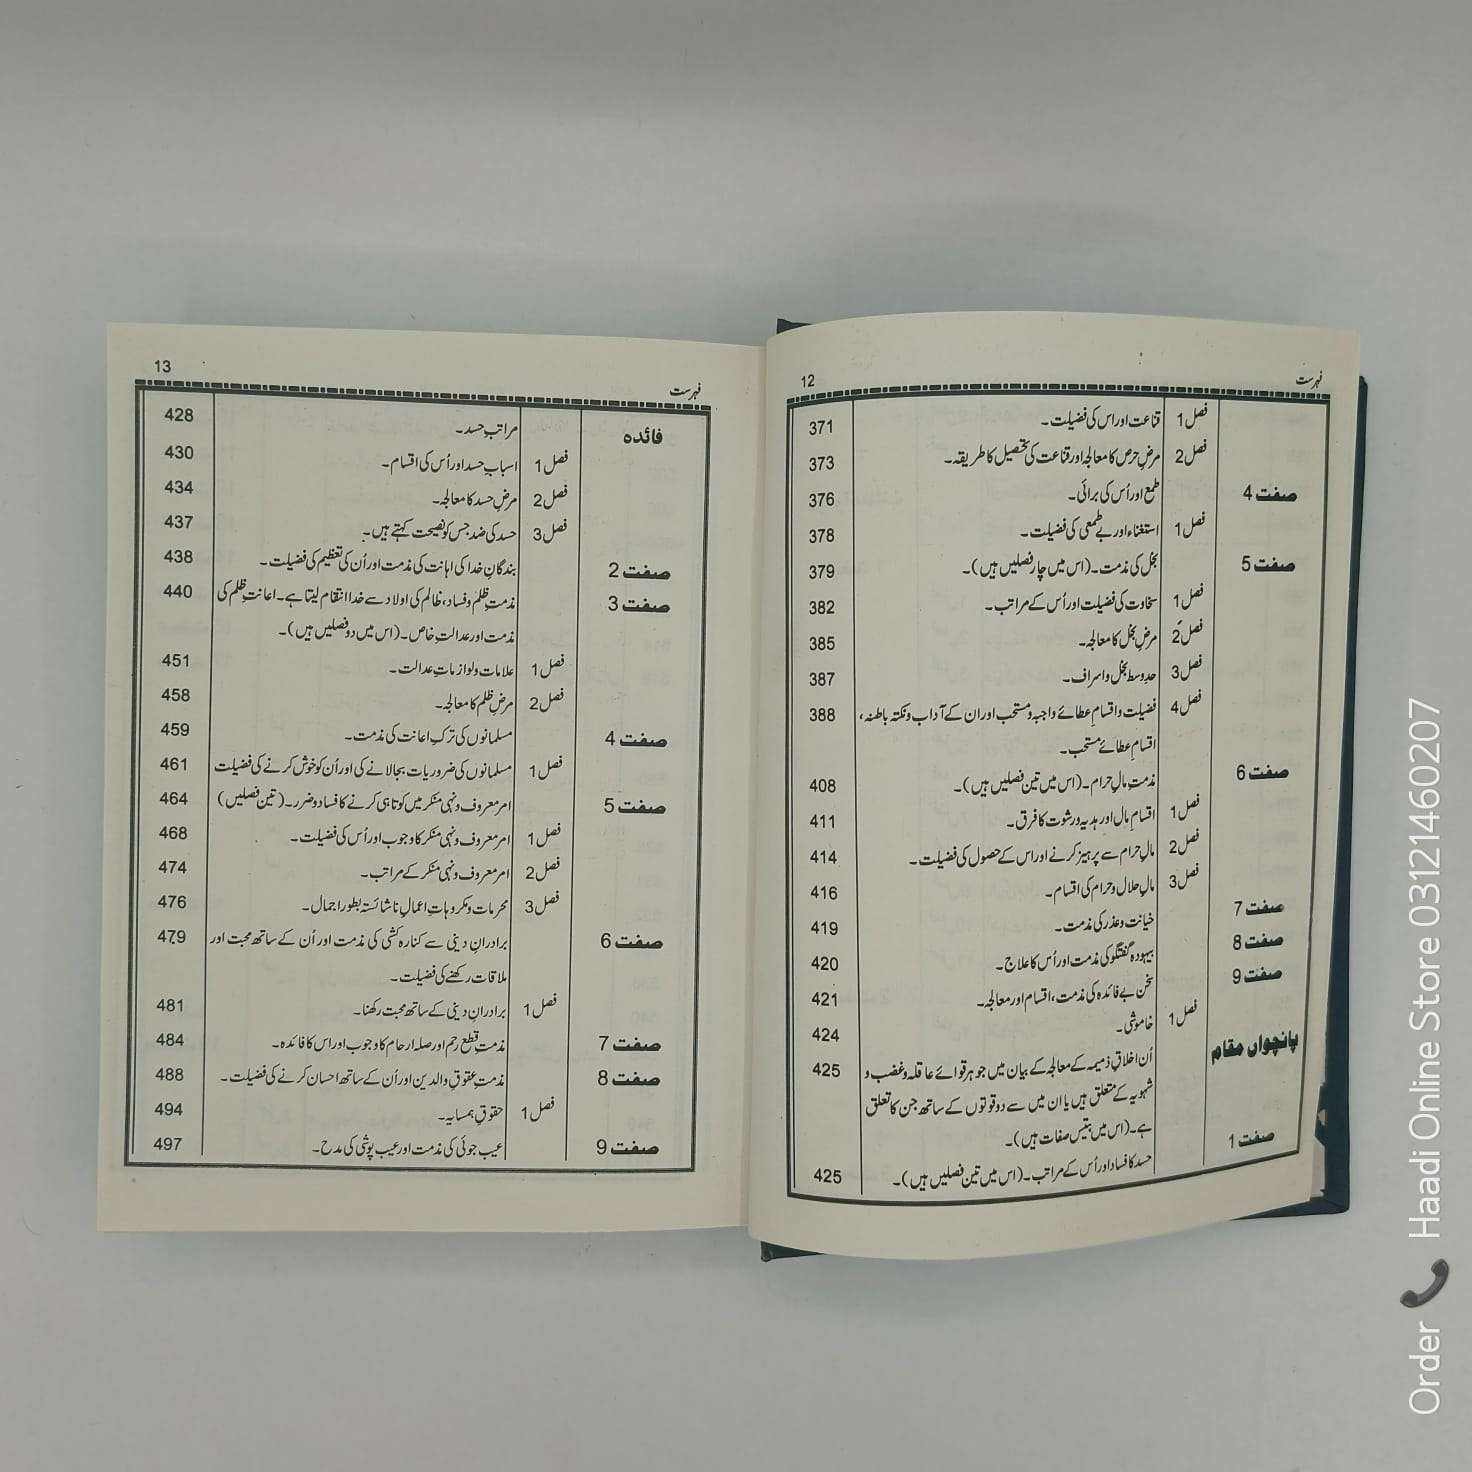 12
فہرست
فصل 1 قناعت اور اس کی فضیلت۔ 371
فصل 2 مرضِ حرص کا معالجہ اور قناعت کی تحصیل کا طریقہ۔ 373
صفت 4 طمع اور اُس کی برائی۔ 376
فصل 1 استغناء اور بے طمعی کی فضیلت۔ 378
صفت 5 بخل کی مذمت۔ (اس میں چار فصلیں ہیں)۔ 379
فصل 1 سخاوت کی فضیلت اور اُس کے مراتب۔ 382
فصل 2 مرضِ بخل کا معالجہ۔ 385
فصل 3 حدِ وسط بخل و اسراف۔ 387
فصل 4 فضیلت و اقسامِ عطائے واجبہ و مستحب اور ان کے آداب و نکتہ باطنہ، 388
اقسامِ عطائے مستحب۔
صفت 6 مذمتِ مالِ حرام۔ (اس میں تین فصلیں ہیں)۔ 408
فصل 1 اقسامِ مال اور ہدیہ و رشوت کا فرق۔ 411
فصل 2 مالِ حرام سے پرہیز کرنے اور اس کے حصول کی فضیلت۔ 414
فصل 3 مالِ حلال و حرام کی اقسام۔ 416
صفت 7 خیانت و عذر کی مذمت۔ 419
صفت 8 بیہودہ گفتگو کی مذمت اور اُس کا علاج۔ 420
صفت 9 سخن بے فائدہ کی مذمت، اقسام اور معالجہ۔ 421
فصل 1 خاموشی۔ 424
پانچواں مقام اُن اخلاقِ ذمیمہ کے معالجہ کے بیان میں جو ہر قوائے عاقلہ و غضب و 425
شہویہ کے متعلق ہیں یا ان میں سے دو قوتوں کے ساتھ جن کا تعلق
ہے۔ (اس میں بتیس صفات ہیں)۔
صفت 1 حسد کا فساد اور اُس کے مراتب۔ (اس میں تین فصلیں ہیں)۔ 425
13
فہرست
فائدہ مراتبِ حسد۔ 428
فصل 1 اسبابِ حسد اور اُس کی اقسام۔ 430
فصل 2 مرضِ حسد کا معالجہ۔ 434
فصل 3 حسد کی ضد جس کو نصیحت کہتے ہیں۔ 437
صفت 2 بندگانِ خدا کی اہانت کی مذمت اور اُن کی تعظیم کی فضیلت۔ 438
صفت 3 مذمتِ ظلم و فساد، ظالم کی اولاد سے خدا انتقام لیتا ہے۔ اعانتِ ظلم کی 440
مذمت اور عدالتِ خاص۔ (اس میں دو فصلیں ہیں)۔
فصل 1 علامات و لوازماتِ عدالت۔ 451
فصل 2 مرضِ ظلم کا معالجہ۔ 458
صفت 4 مسلمانوں کی ترکِ اعانت کی مذمت۔ 459
فصل 1 مسلمانوں کی ضروریات بجا لانے کی اور اُن کو خوش کرنے کی فضیلت 461
صفت 5 امر معروف و نہی منکر میں کوتاہی کرنے کا فساد و ضرر۔ (تین فصلیں) 464
فصل 1 امر معروف و نہی منکر کا وجوب اور اُس کی فضیلت۔ 468
فصل 2 امر معروف و نہی منکر کے مراتب۔ 474
فصل 3 محرمات و مکروہاتِ اعمالِ ناشائستہ بطورِ اجمال۔ 476
صفت 6 برادرانِ دینی سے کنارہ کشی کی مذمت اور اُن کے ساتھ محبت اور 479
ملاقات رکھنے کی فضیلت۔
فصل 1 برادرانِ دینی کے ساتھ محبت رکھنا۔ 481
صفت 7 مذمتِ قطع رحم اور صلہ ارحام کا وجوب اور اس کا فائدہ۔ 484
صفت 8 مذمتِ عقوقِ والدین اور اُن کے ساتھ احسان کرنے کی فضیلت۔ 488
فصل 1 حقوقِ ہمسایہ۔ 494
صفت 9 عیب جوئی کی مذمت اور عیب پوشی کی مدح۔ 497
Order 📞 Haadi Online Store 03121460207